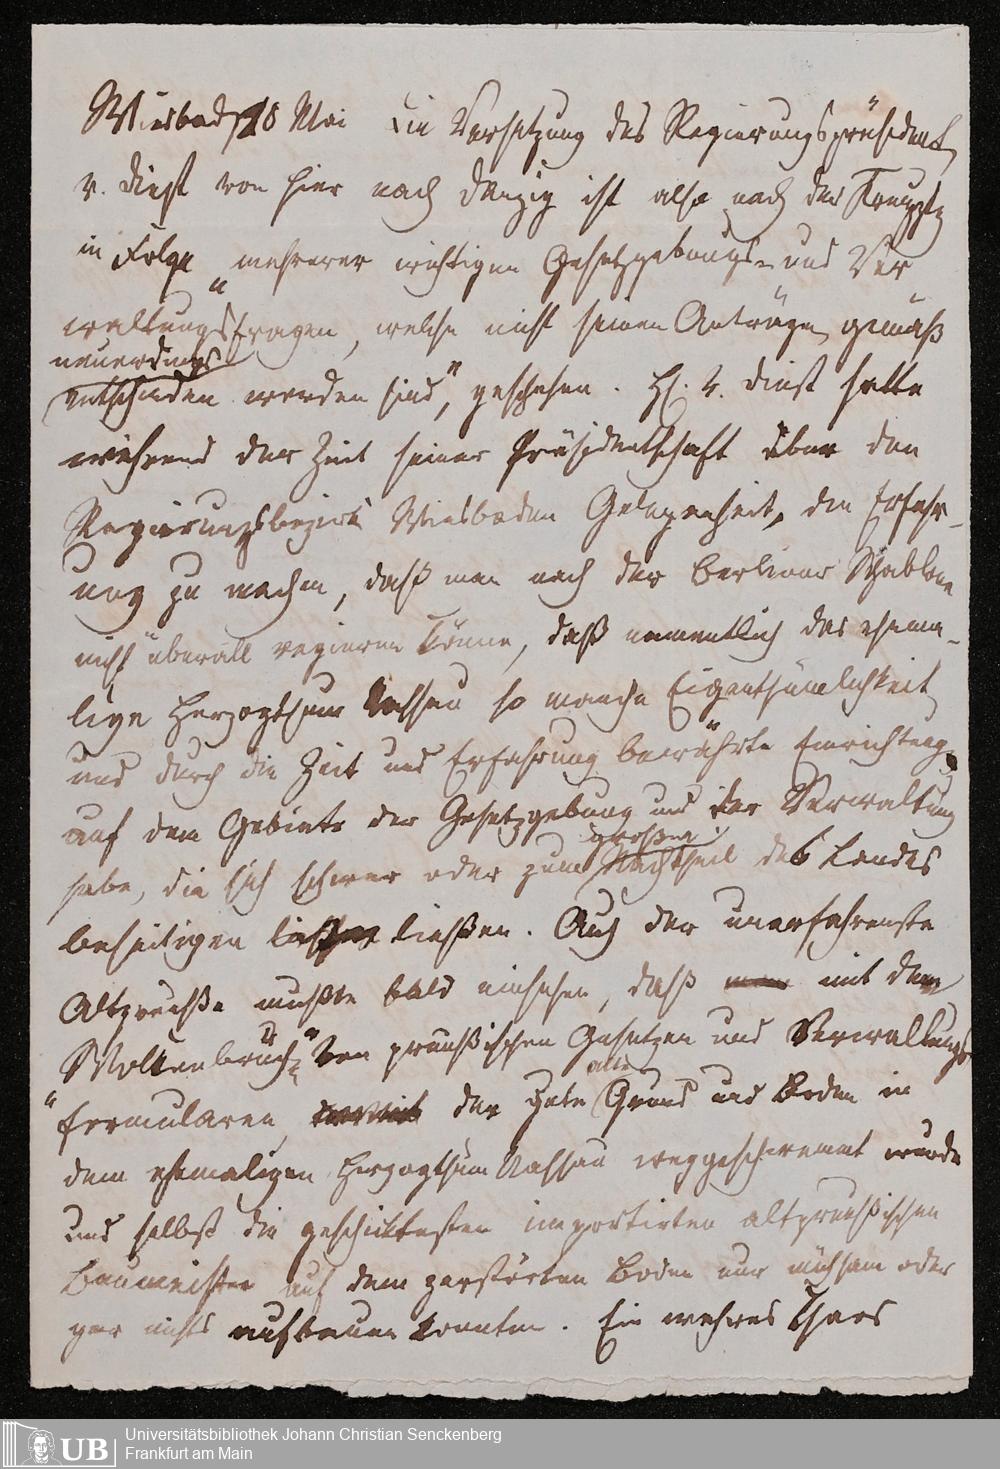 Wiesbad 28 Mai Die Versetzung des Regierungspräsident
v. Diest von hier nach Danzig ist also nach der Kreuzztg
in Folge „mehrerer wichtigen Gesetzgebungs- und Ver
waltungsfragen, welche nicht seinen Anträgen gemäß
neuerdings
entschieden worden sind“, geschehen. H. v. Diest hatte
während der Zeit seiner Präsidentschaft über den
Regierungsbezirk Wiesbaden Gelegenheit, die Erfahr-
ung zu machen, daß man nach der Berliner Schablone
nicht überall regieren könne, daß namentlich das ehema-
lige Herzogthum Nassau so manche Eigenthümlichkeit
und durch die Zeit und Erfahrung bewährte Einrichtung
auf dem Gebiete der Gesetzgebung und der Verwaltung
großen
habe, die sich schwer oder zum Nachtheil des Landes
beseitigen ließen. Auch der unerfahrenste
Altpreuße mußte bald einsehen, daß man mit dem
Wolkenbruch „von preußischen Gesetzen und Verwaltungs
alte
formularen“ der gute Grund und Boden in
dem ehemaligen Herzogthum Nassau weggeschwemmt wurde
und selbst die geschicktesten importirten altpreußischen
Baumeister auf dem zerstörten Boden nur mühsam oder
gar nichts aufbauen konnten. Ein wahres Chaos
Universitätsbibliothek Johann Christian Senckenberg
UB Frankfurt am Main